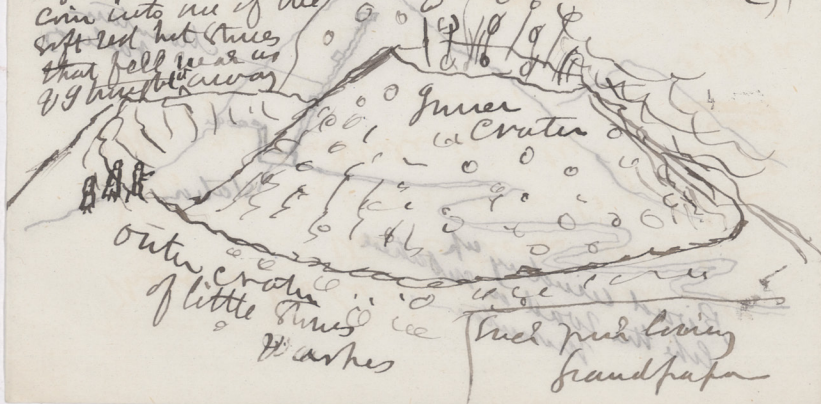 coin into one of the
soft red hot stones
that fell near us
& brought it away
Inner
Crater
outer crater
of little stones
& ashes
Your loving
Grandpapa